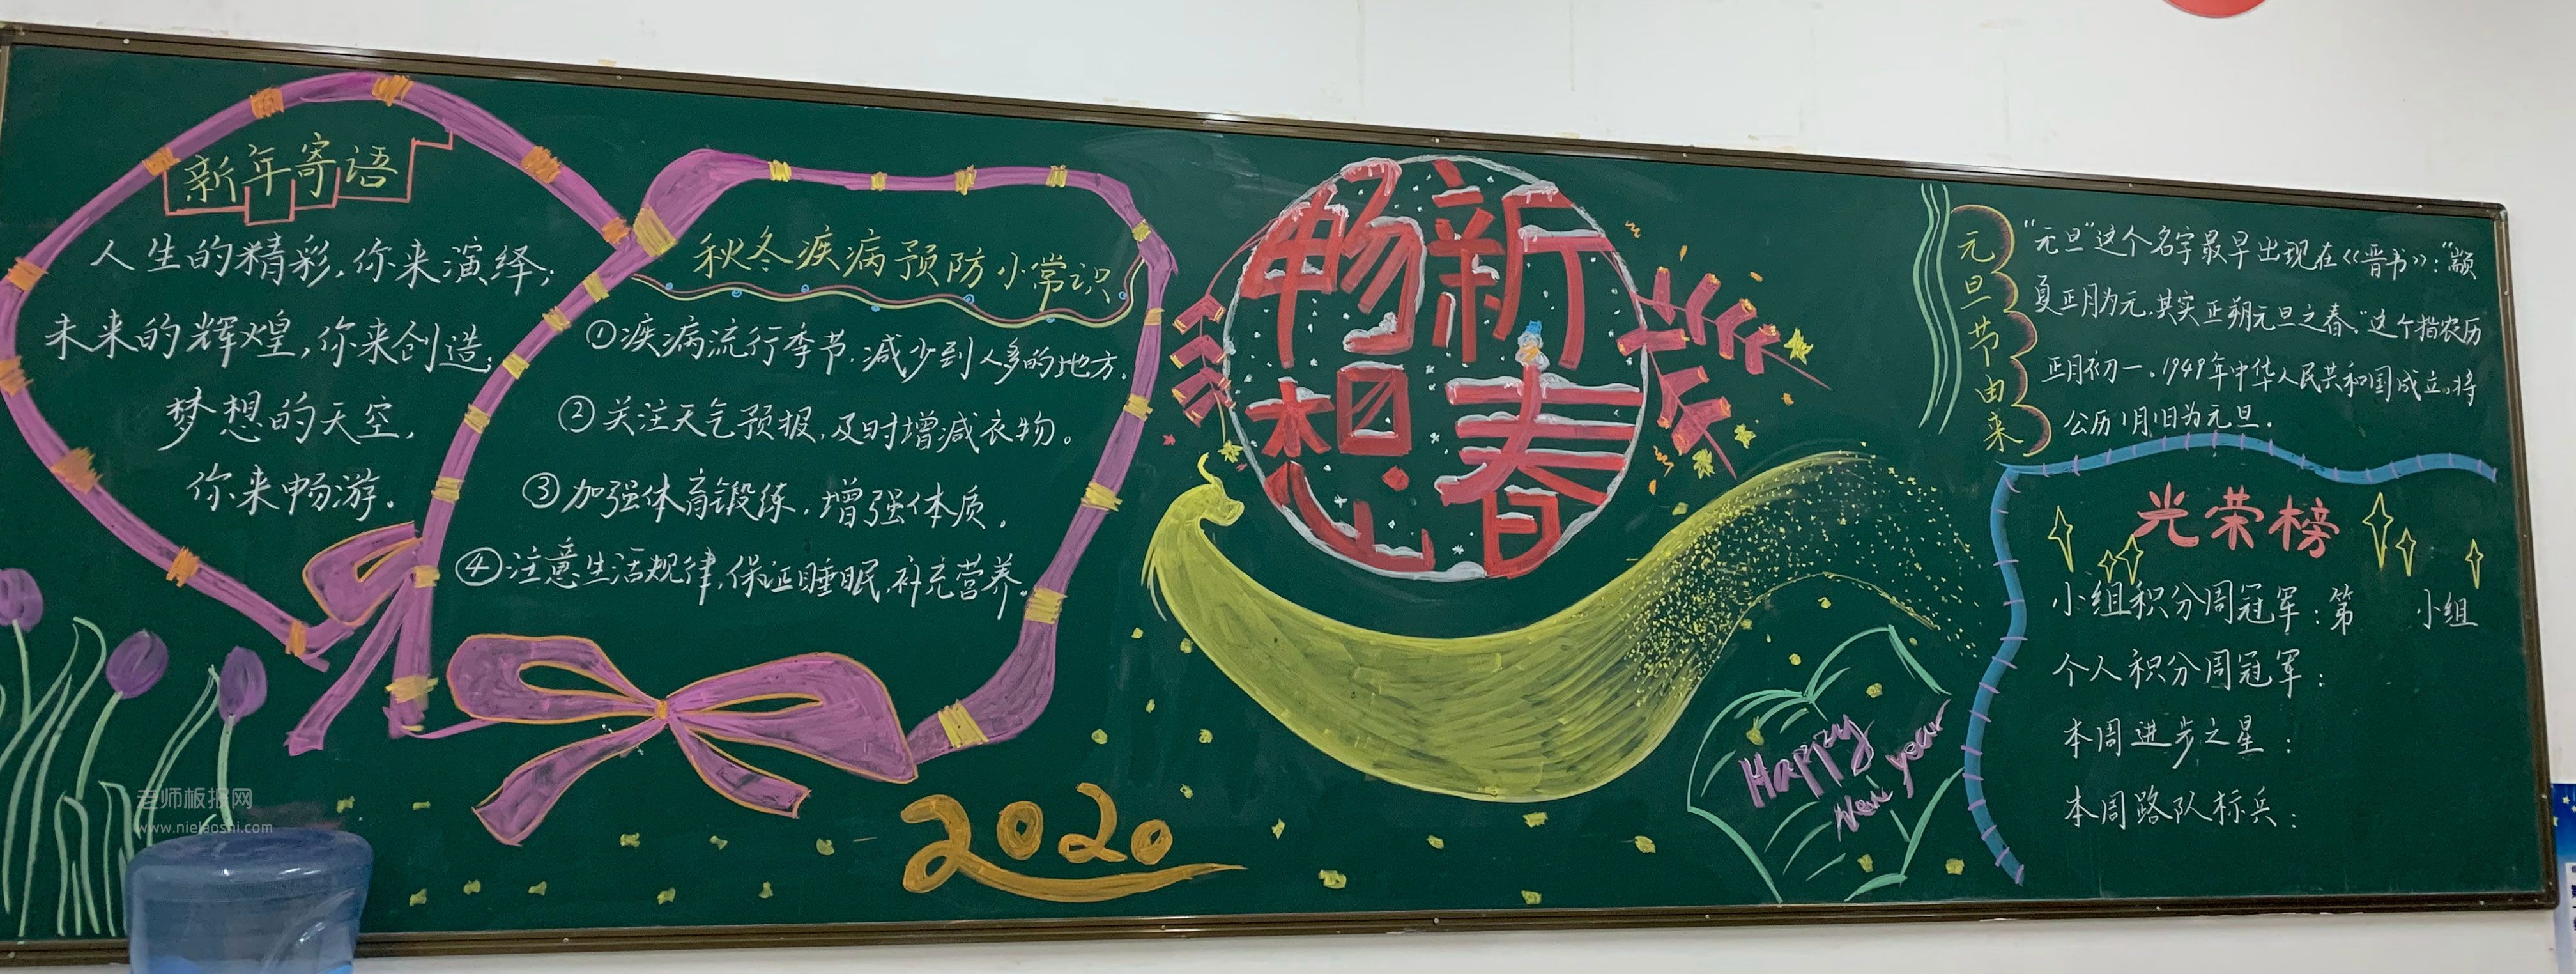 新年寄语
人生的精彩,你来演绎;
未来的辉煌,你来创造;
梦想的天空,
你来畅游。
秋冬疾病预防小常识
①疾病流行季节,减少到人多的地方。
②关注天气预报,及时增减衣物。
③加强体育锻炼,增强体质。
④注意生活规律,保证睡眠,补充营养。
2020
畅想
新春
Happy
New year
元旦节由来
“元旦”这个名字最早出现在《晋书》:“颛
夏正月为元,其实正朔元旦之春.”这个指农历
正月初一。1949年中华人民共和国成立,将
公历1月1日为元旦.
光荣榜
小组积分周冠军:第 小组
个人积分周冠军:
本周进步之星:
本周路队标兵:
老师板报网
www.nielaoshi.com